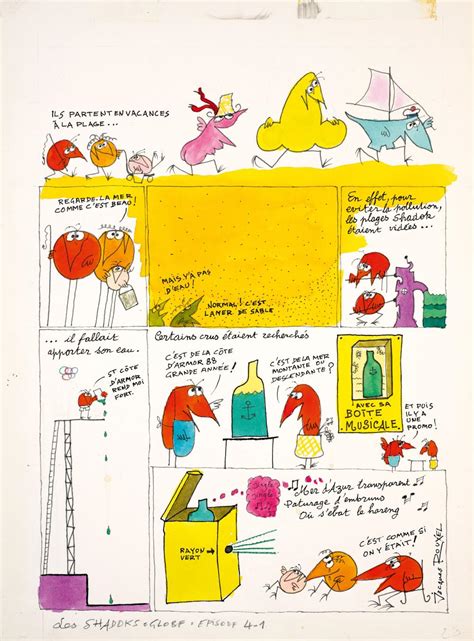 ILS PARTENT EN VACANCES
À LA PLAGE...
REGARDE-LA MER
COMME C'EST BEAU!
MAIS Y'A PAS
D'EAU!
NORMAL! C'EST
LA MER DE SABLE
En effet, pour
eviter la pollution,
les plages Shadok
étaient vidées...
... il fallait
apporter son eau.
ST CÔTE
D'ARMOR
REND MOI
FORT.
Certains crus étaient recherchés
C'EST DE LA CÔTE
D'ARMOR 88
GRANDE ANNÉE!
C'EST DE LA MER
MONTANTE OU
DESCENDANTE?
AVEC SA
BOÎTE
MUSICALE
ET PUIS
IL Y A
UNE
PROMO!
RAYON
VERT
Mer d'Azur transparent
Paturage d'embruns
Où s'ebat le hareng
C'EST COMME SI
ON Y ÉTAIT!
Jacques ROUXEL
Les SHADOKS - GLOBE - EPISODE 4-1